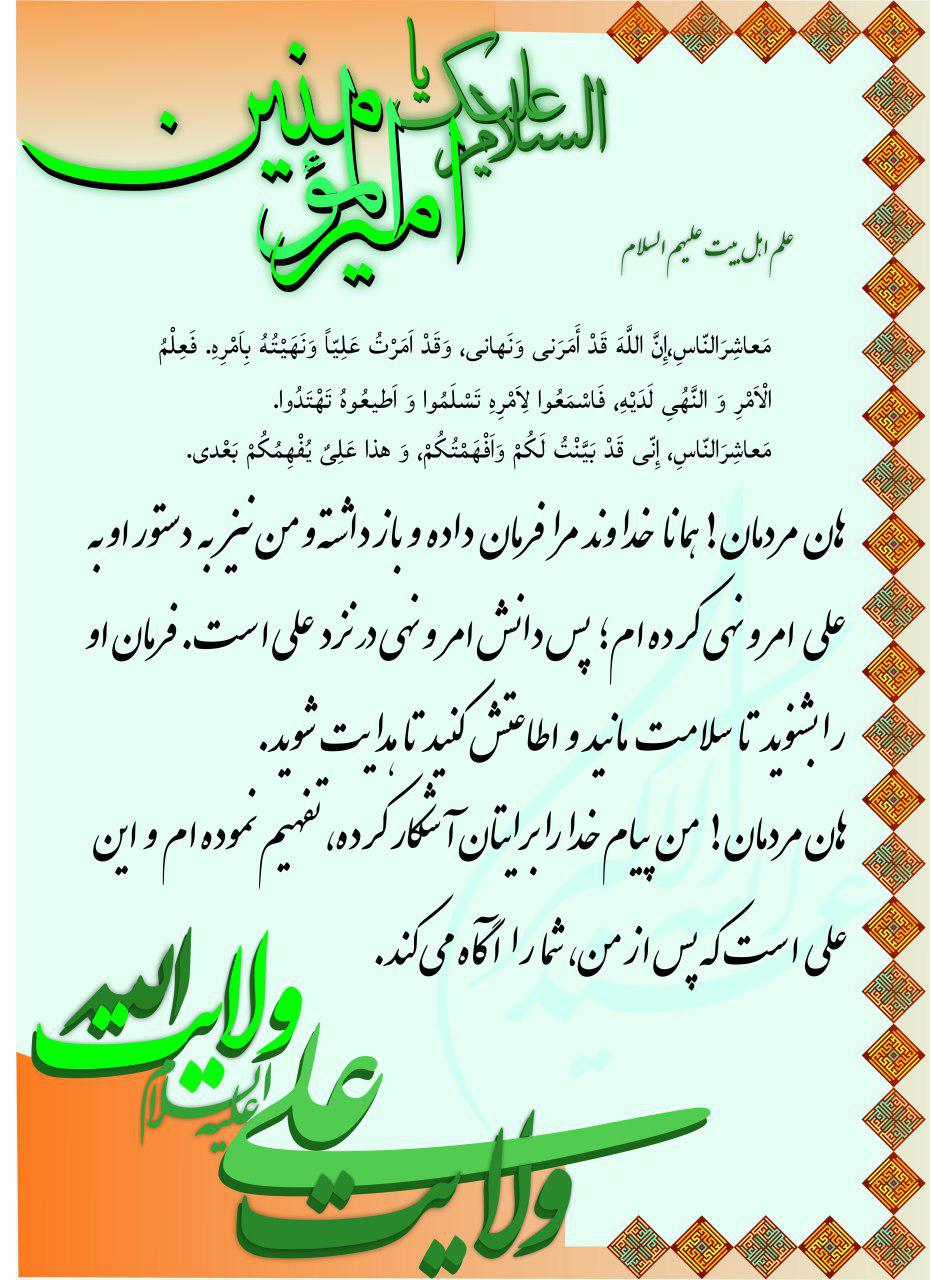 السلام علیک یا
امیرالمؤمنین
علم اهل بیت علیهم السلام
مَعاشِرَالنّاسِ،إِنَّ اللَّهَ قَدْ أَمَرَنی وَنَهانی، وَقَدْ اَمَرْتُ عَلِیّاً وَنَهَیْتُهُ بِاَمْرِهِ. فَعِلْمُ
الْاَمْرِ وَ النَّهُیِ لَدَیْهِ، فَاسْمَعُوا لِاَمْرِهِ تَسْلَمُوا وَ اَطیعُوهُ تَهْتَدُوا.
مَعاشِرَالنّاسِ، إِنّی قَدْ بَیَّنْتُ لَکُمْ وَاَفْهَمْتُکُمْ، وَ هذا عَلِیٌ یُفْهِمُکُمْ بَعْدی.
هان مردمان! همانا خداوند مرا فرمان داده و باز داشته و من نیز به دستور او به
علی امر و نهی کرده ام؛ پس دانش امر و نهی در نزد علی است. فرمان او
را بشنوید تا سلامت مانید و اطاعتش کنید تا هدایت شوید.
هان مردمان! من پیام خدا را برایتان آشکار کرده، تفهیم نموده ام و این
علی است که پس از من، شما را آگاه می کند.
ولایت الله
ولایت علی علیه السلام